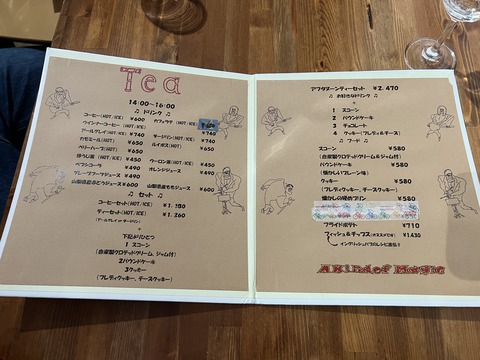 Tea
14:00~16:00
♫ ドリンク ♫
コーヒー(HOT/ICE) ¥600
カフェラテ (HOT/ICE)
ウインナーコーヒー (HOT/ICE) ¥740
アールグレイ(HOT/ICE) ¥650
ダージリン(HOT/ICE) ¥740
カモミール(HOT) ¥650
ルイボス(HOT) ¥650
ベリーハーブ(HOT) ¥650
ほうじ茶 (HOT/ICE) ¥450
ウーロン茶(HOT/ICE) ¥450
ペプシコーラ ¥490
オレンジジュース ¥490
グレープフルーツジュース ¥490
ジュース ¥600
山梨県産ももジュース ¥600
♫ セット ♫
コーヒーセット(HOT/ICE) ¥1.150
ティーセット(HOT/ICE) ¥1.260
+
下記からひとつ
1 スコーン
(自家製クロテッドクリーム&ジャム付)
2パウンドケーキ
3クッキー
(フレディクッキー、チーズクッキー)
アフタヌーンティーセット ¥2.470
♫ お好きなドリンク ♫
+
1 スコーン
2 パウンドケーキ
3 チョコレート
4 クッキー(フレディ&チーズ)
♫ フード ♫
スコーン ¥580
(自家製クロテッドクリーム&ジャム付)
パウンドケーキ ¥580
(懐かしいプレーン味)
クッキー ¥580
(フレディクッキー、チーズクッキー)
懐かしの焼きプリン ¥580
フライドポテト ¥710
フィッシュ&チップス(オススメです) ¥1.430
イングリッシュパブのレシピ直伝!!
A Kind of Magic